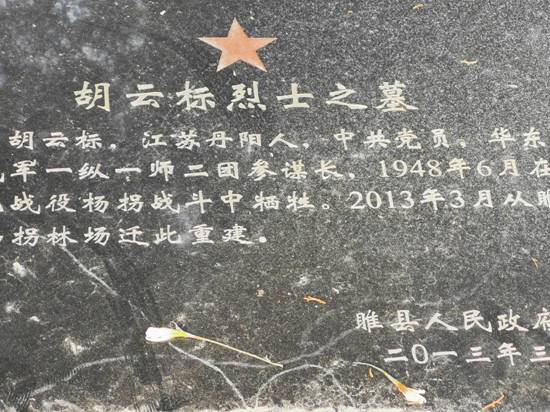 胡云标烈士之墓
胡云标，江苏丹阳人，中共党员，华东
军一纵一师二团参谋长，1948年6月在
战役杨拐战斗中牺牲。2013年3月从睢
拐林场迁此重建。
睢县人民政府
二〇一三年三